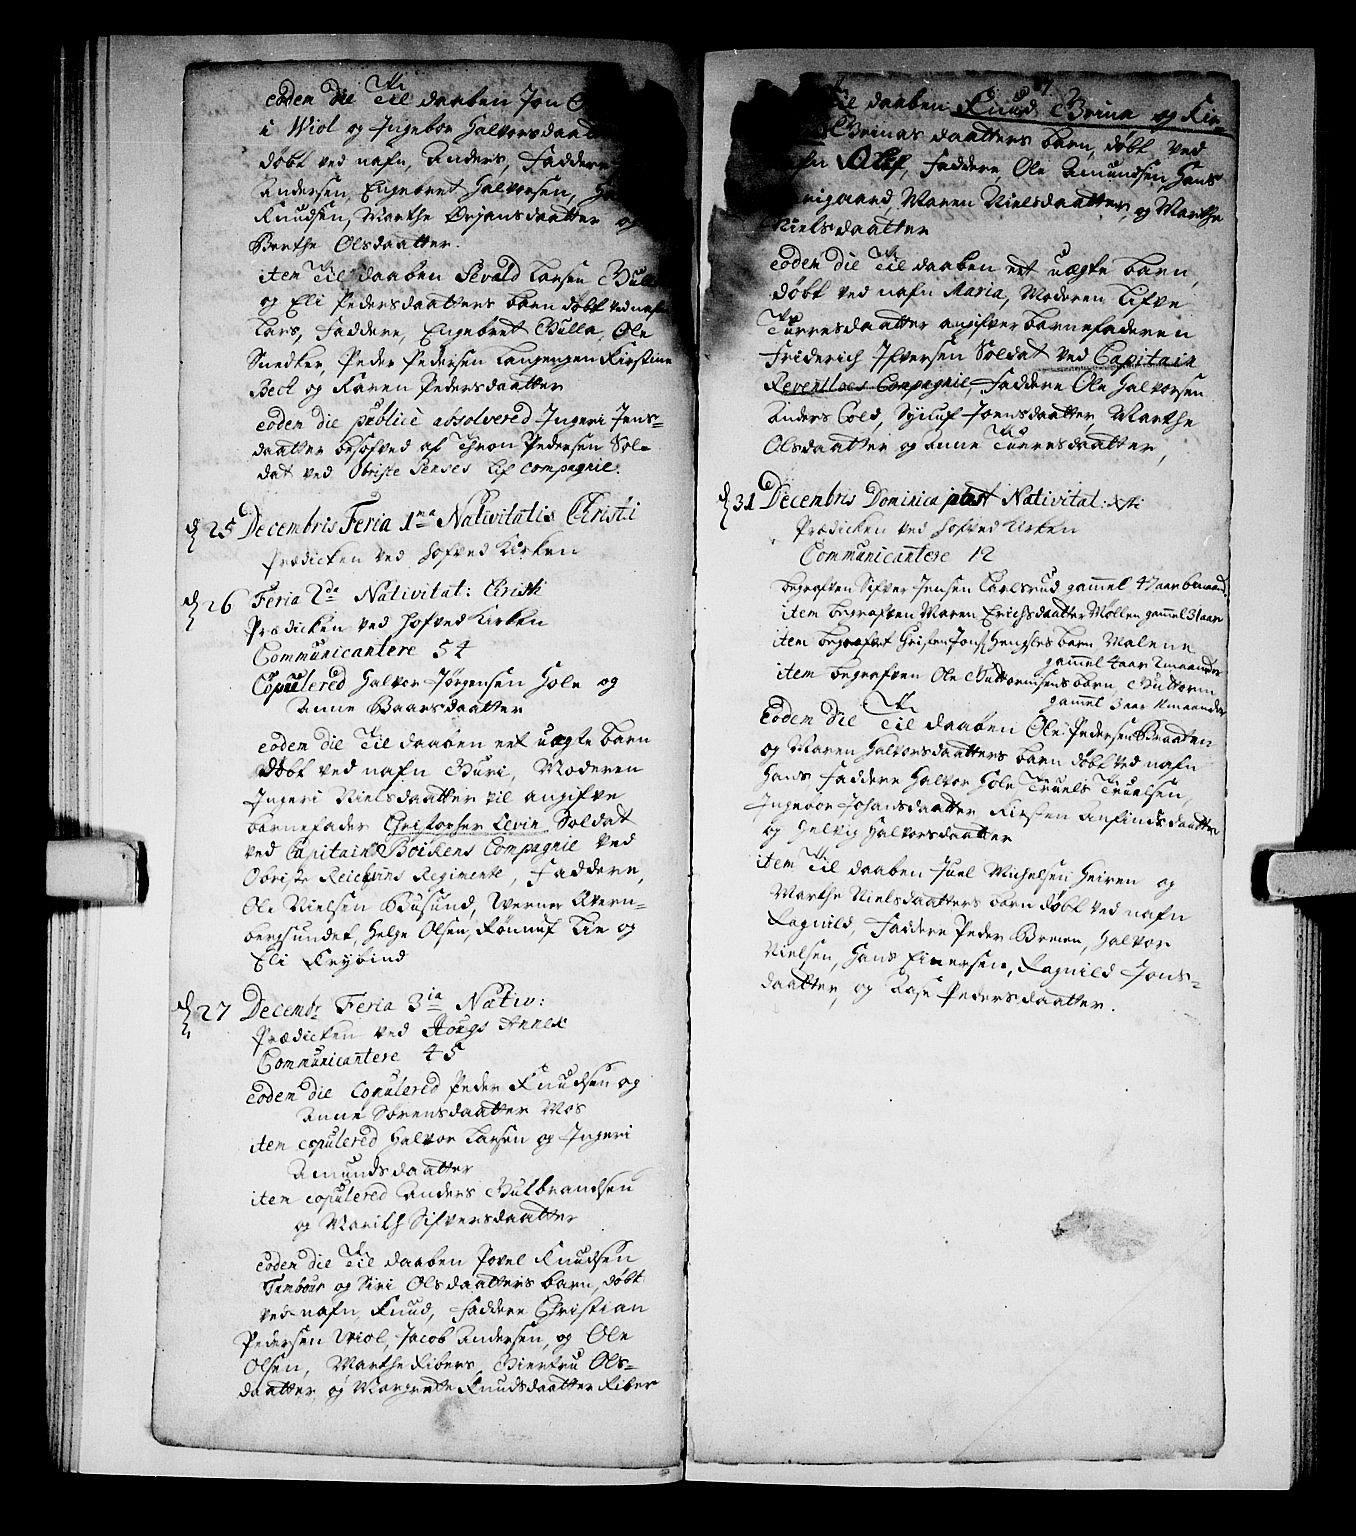 eodem die Til daaben Jon
i Wiol og Ingebor Halvorsdaatt
døbt ved nafn, Anders, Faddere
Andersen, Engebret Halvorsen,
Knudsen, Marthe Ørjansdaatter og
Berthe Olsdaatter.
item Til daaben Sevald Larsen Bulla
og Eli Pedersdaatters barn døbt ved nafn
Lars, Faddere, Engebret Bulla, Ole
Snedker, Peder Pedersen Langengen Kirstine
Beck og Karen Pedersdaatter
eodem die publicè absolvered Ingeri Jens-
daatter besofved af Thron Pedersen Sol-
dat ved Obriste Lif Compagnie.
25 Decembris Feria 1ma Nativitatis Christi
Prædicken ved Hofved Kirken
26 Feria 2da Nativitat: Christi
Prædicken ved Hofved Kirken
Communicantere 54
Copulered Halvor Jørgensen Hole og
Anne Baarsdaatter
eodem die Til daaben eet uægte barn
døbt ved nafn Guri, Moderen
Ingeri Nielsdaatter vil angifve
barnefader Christopher Levin Soldat
ved Capitain Boikens Compagnie ved
Obriste Regimente, Faddere,
Ole Nielsen Busund, Werner Kvern-
bergsundet, Helge Olsen, Rønnef Lie og
Eli Frybind
27 Decembr Feria 3ia Nativ:
Prædicken ved Hougs Annex
Communicantere 45
eodem die Copulered Peder Knudsen og
Anne Sørensdaatter Moe
item copulered Halvor Larsen og Ingeri
Amundsdaatter
item copulered Anders Gulbrandsen
og Marith Sifversdaatter
eodem die Til daaben Povel Knudsen
Tambour og Siri Olsdaatters barn, døbt
ved nafn, Knud, Faddere Christian
Pedersen Wiol, Jacob Andersen, og Ole
Olsen, Marthe Fibers, Giertru Ols-
daatter, og Margrete Knudsdaatter Fiber
Til daaben Knud Brina og Kir-
Brinas daatters barn, døbt ved
nafn Olle, Faddere, Ole Amundsen, Hans
Maren Nielsdaatter, og Marthe
Nielsdaatter
eodem die Til daaben eet uægte barn,
døbt ved nafn Maria, Moderen Lisve
Turresdaatter angifver barnefaderen
Friderich Ifversen Soldat ved Capitain
Reventloes Compagnie, Faddere Ole Halvorsen
Anders Cold, Joensdaatter, Marthe
Olsdaatter og Anne Turresdaatter,
31 Decembris Dominica post Nativitat: Xsti
Prædicken ved Hofved Kirken
Communicantere 12
begrafven Sifver Jensen Carlsrud gammel 47 aar 6 maan
item begrafven Maren Erichsdaatter Møllen gammel 31 aar
item begrafvet barn Malene
gammel 4 aar 2 maander
item begrafven Ole Guttormsens barn, Guttorm
gammel 3 aar 11 maander
Eodem die Til daaben Ole Pedersen Braaten
og Maren Halvorsdaatters barn døbt ved nafn
Hans, Faddere Halvor Hole Truels Truelsen,
Ingebor Johansdaatter Kirsten Anfindsdaatter
og Helvig Halvorsdaatter
item Til daaben Juel Michelsen Heiren og
Marthe Nielsdaatters barn døbt ved nafn
Ragnild, Faddere Peder Breien, Halvor
Nielsen, Hans Einersen, Ragnild Jons-
daatter, og Aase Pedersdaatter.